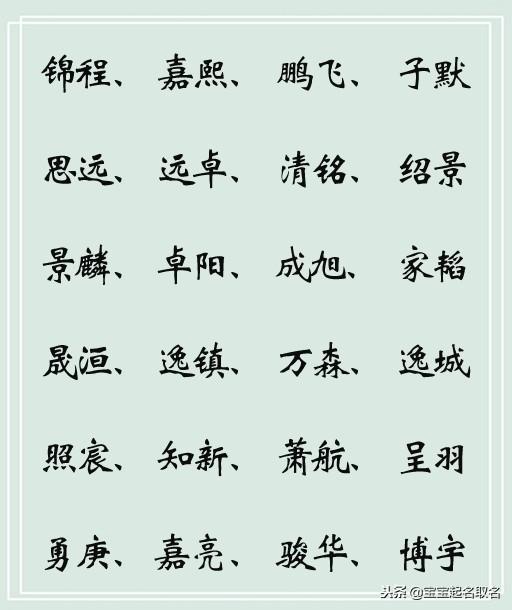 锦程、 嘉熙、 鹏飞、 子默
思远、 远卓、 清铭、 绍景
景麟、 卓阳、 成旭、 家韬
晟洹、 逸镇、 万森、 逸城
照宸、 知新、 萧航、 呈羽
勇庚、 嘉亮、 骏华、 博宇
头条 @宝宝起名取名